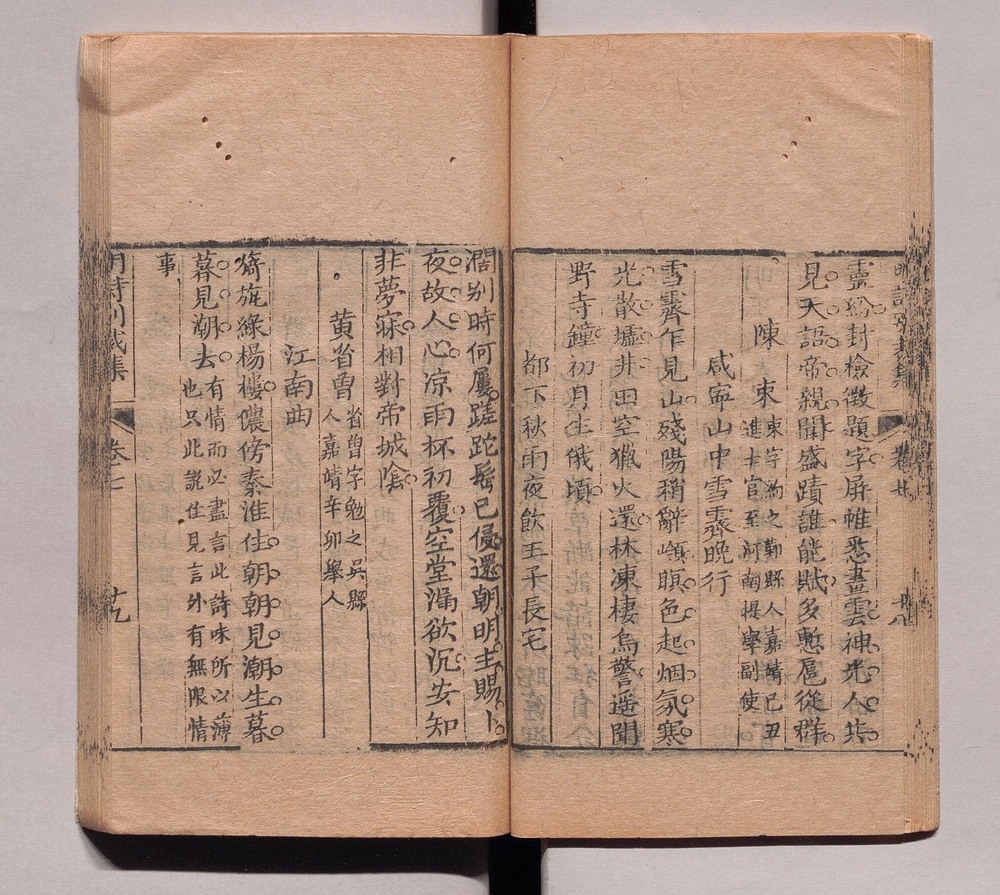 靈紛封檢徵題字屏帷悉畫雲神光人共
見天語帝親聞盛蹟誰能賦多慙扈從群
陳束 束字約之鄞縣人嘉靖己丑
進士官至河南提學副使
咸寧山中雪霽晚行
雪霽乍見山殘陽稍辭嶺瞑色起烟氛寒
光散墟井田空獵火還林凍棲烏警遥聞
野寺鐘初月生俄頃
都下秋雨夜飲王子長宅
濶别時何屢蹉跎鬂已侵還朝明主賜卜
夜故人心凉雨杯初覆空堂漏欲沉安知
非夢寐相對帝城陰
黄省曾 省曾字勉之吳縣
人嘉靖辛卯舉人
江南曲
旖旎綠楊樓儂傍秦淮住朝朝見潮生暮
暮見潮去 有情而必盡言此詩味所以薄
也只此說住見言外有無限情
事
卷七